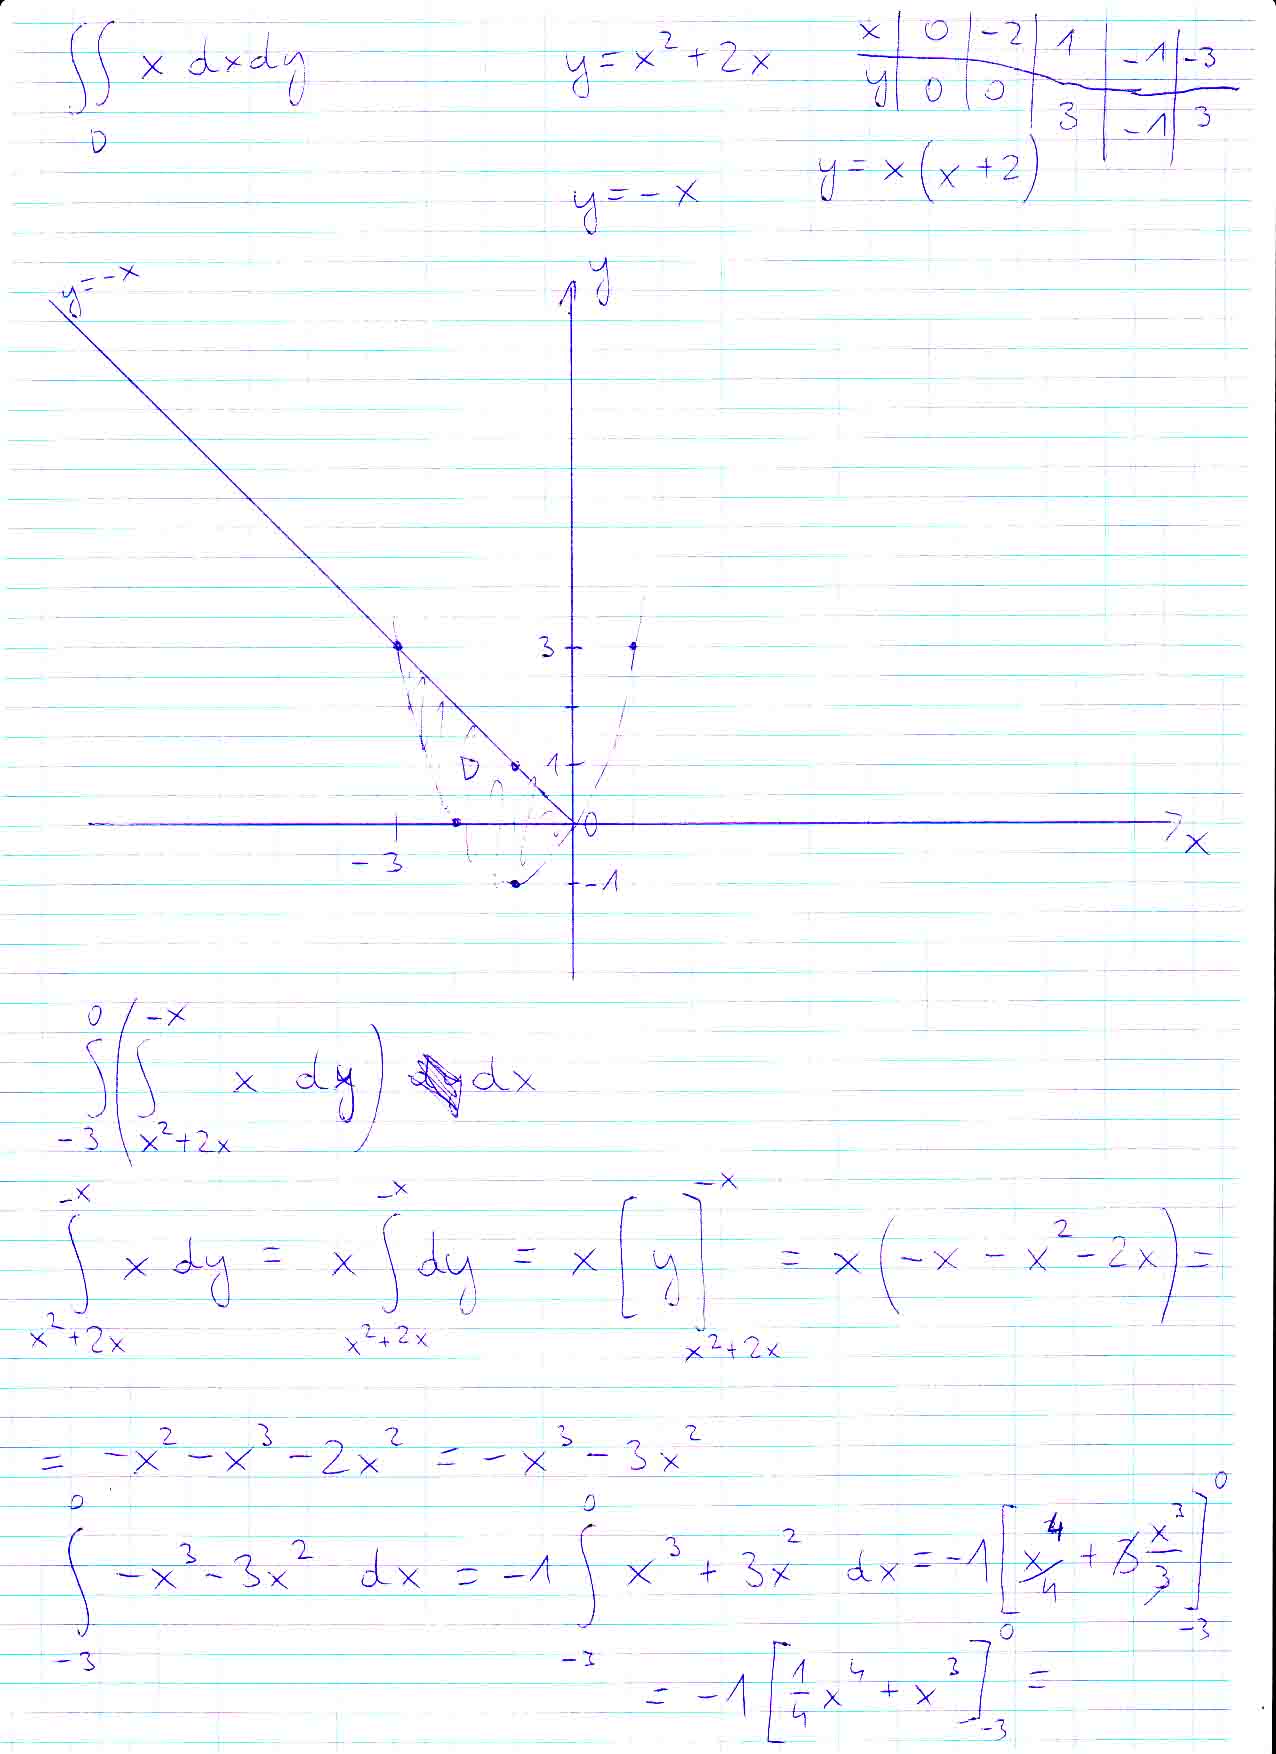 ∬_D x dxdy    y = x² + 2x    x | 0 | -2 | 1 | -1 | -3
y | 0 | 0 | 3 | -1 | 3
y = x(x+2)
y = -x
y = -x
y
3
D 1
0
x
-3
-1
∫_{-3}^{0} ( ∫_{x²+2x}^{-x} x dy ) dx
∫_{x²+2x}^{-x} x dy = x ∫_{x²+2x}^{-x} dy = x [y]_{x²+2x}^{-x} = x(-x - x² - 2x) =
= -x² - x³ - 2x² = -x³ - 3x²
∫_{-3}^{0} -x³ - 3x² dx = -1 ∫_{-3}^{0} x³ + 3x² dx = -1 [x⁴/4 + 3 x³/3]_{-3}^{0}
= -1 [1/4 x⁴ + x³]_{-3}^{0} =